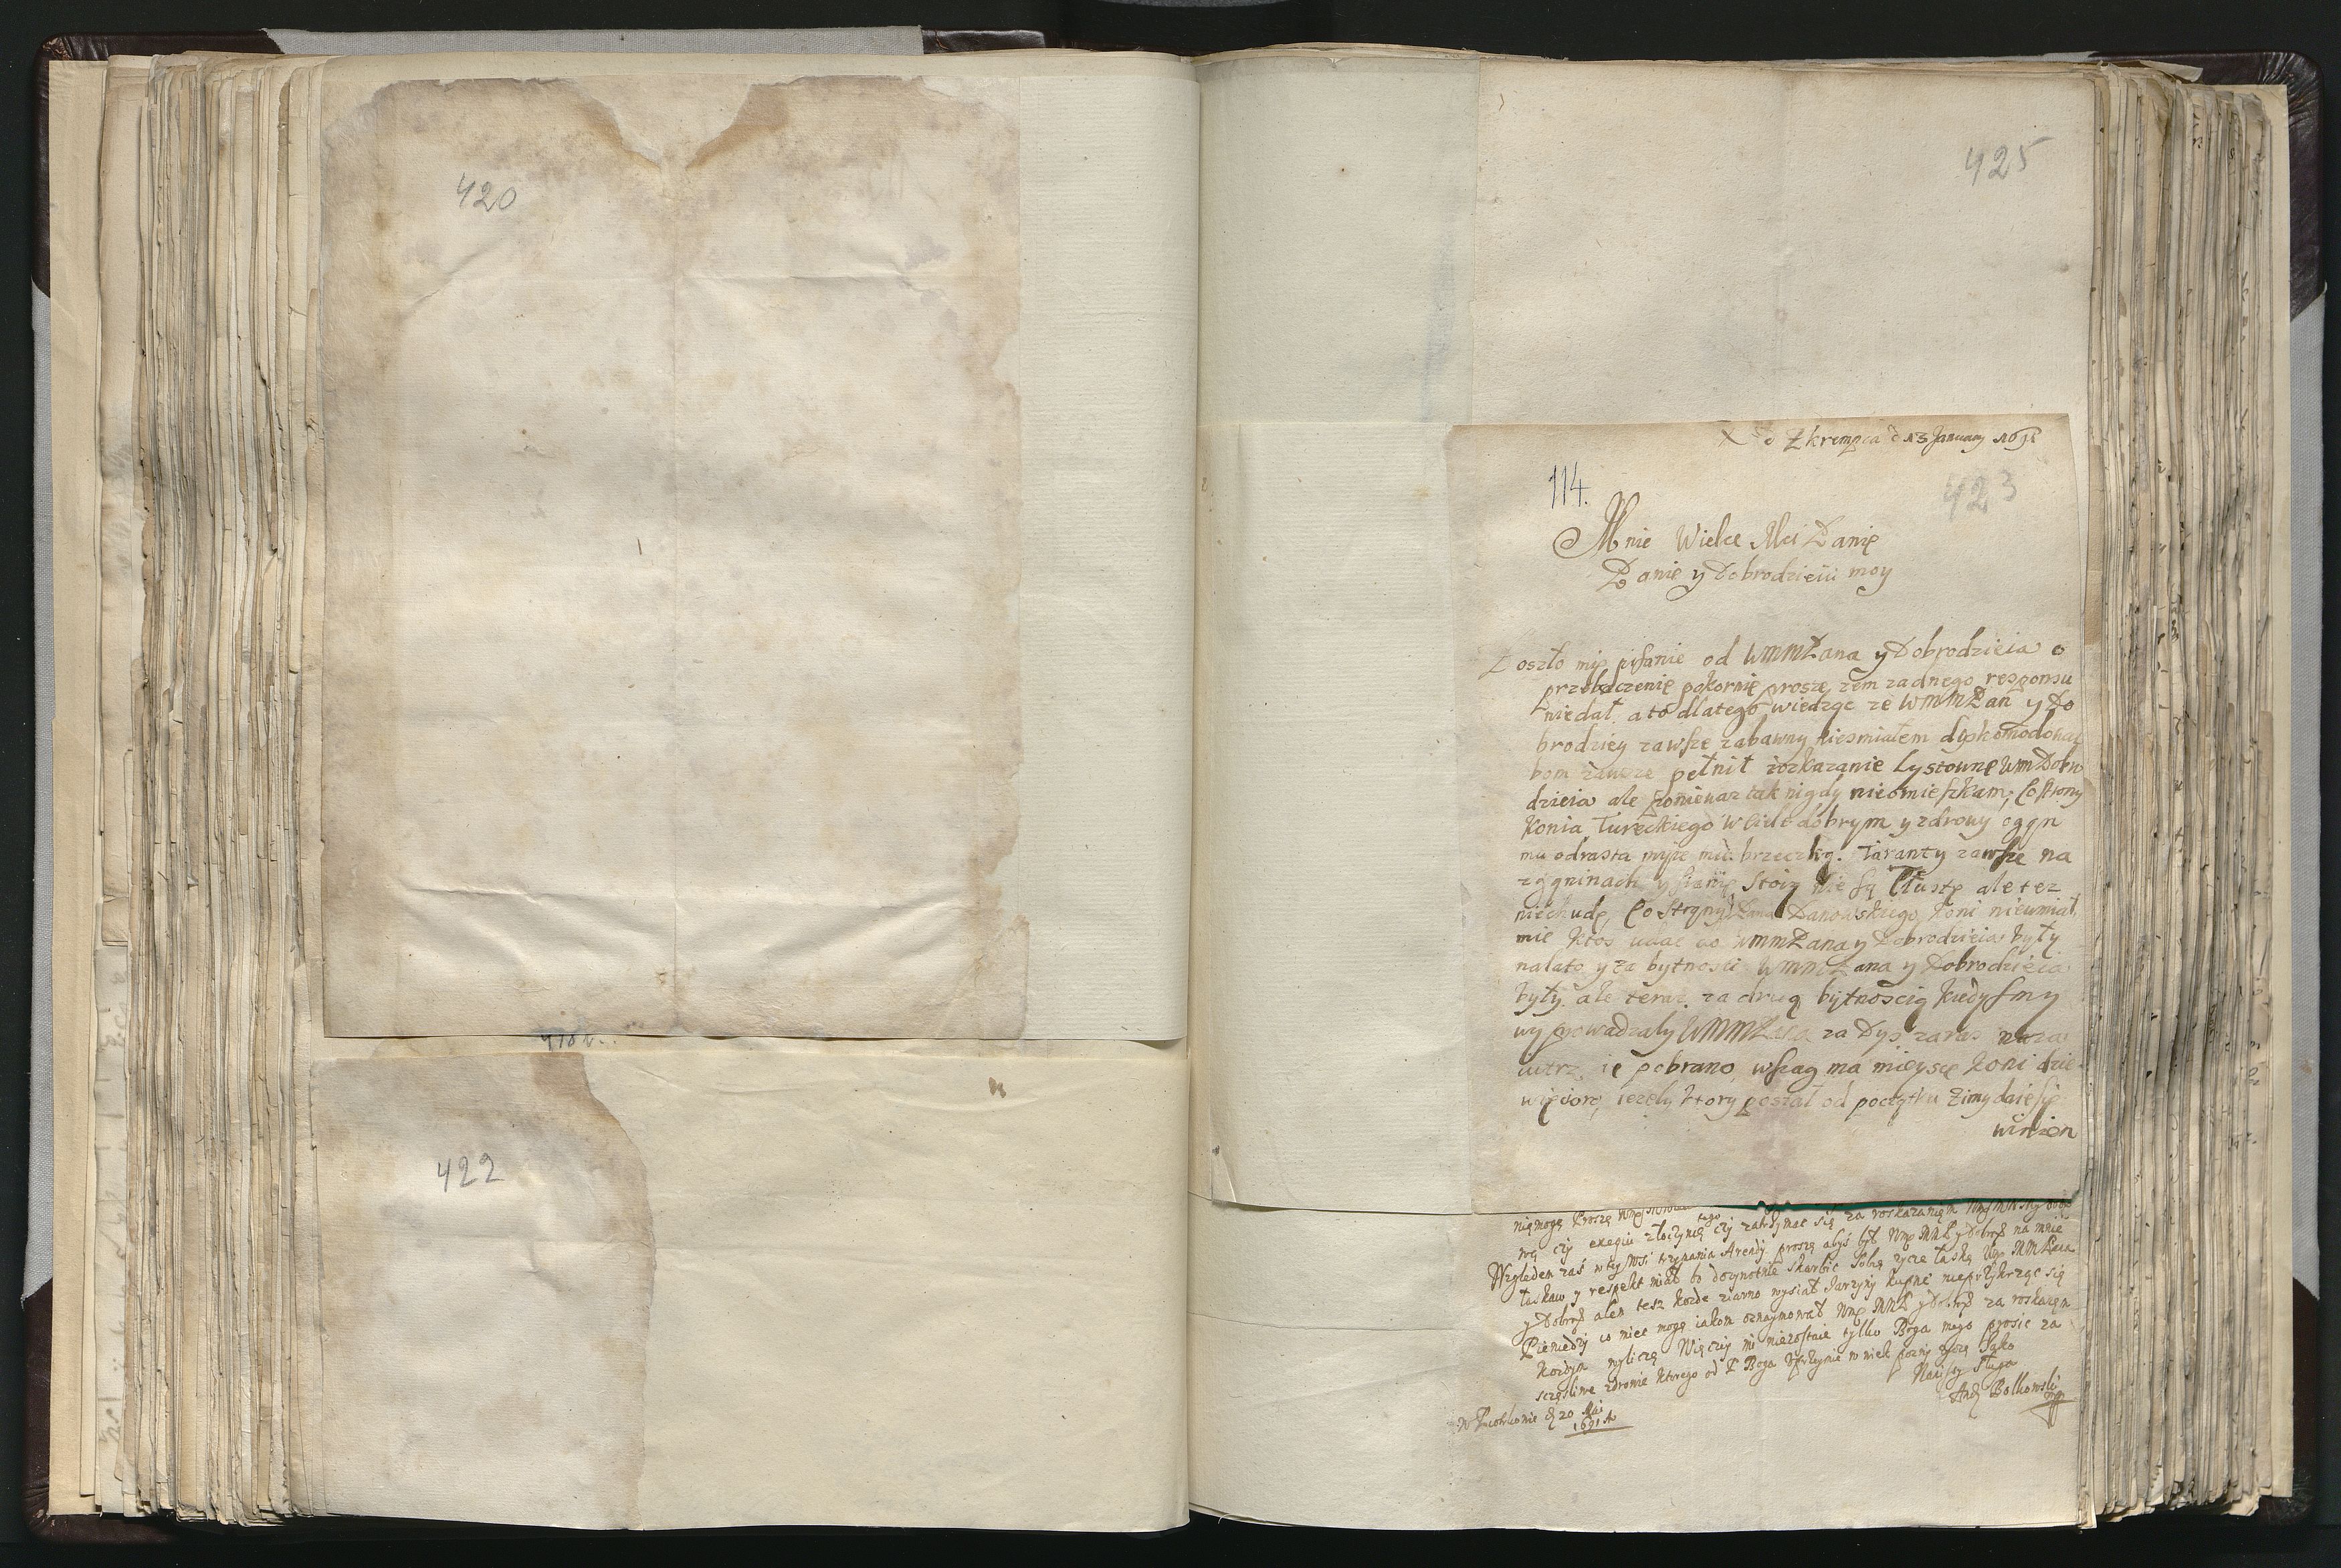 420
422
425
Zkrempca d 13 January 1691
114.
423
Mnie Wielce Mci Panie
Panie y Dobrodzieiu moy
Doszło mię pisanie od WMMPana y Dobrodzieia o
przebaczenie pokornie proszę zem zadnego responsu
niedał. a to dlatego wiedząc ze WMMPan y Do
brodziey zawsze zabawny niesmiałem
bom zawsze pełnił rozkazanie Lystowne WM Dobro
dzieia ale poniewaz tak nigdy nieomieszkam; Co strony
Konia Tureckiego w Ciele dobrym y zdrowy ogon
mu odrasta myie mu brzeczką. Taranty zawsze na
y sienie Stoią nie są Tłuste ale tez
niechude, Co Strony Pana Danowskiego Koni nieumiał
mie ktos udac do WMMPana y Dobrodzieia były
nalato y za bytnosci WMMPana y Dobrodzieia
były. ale teraz za drugą bytnoscią kiedysmy
wyprowadzaly WMMPana za Dys zaraz naza
iutrz ie pobrano, wszag ma mieysce Koni dzie
więcioro, iezely ktory postał od początku Zimy daię się
winien
niemogę Proszę
czy exequi złoczynię czy zatrzymac się za roskazaniem
tego
Względem zaś w tey Wsi trzymania Arendy proszę abyś był Wmp MMP y Dobrodz na mnie
łaskaw y respekt miał bo skarbic Sobię zycze łaskę Wmp MMPana
y Dobrodz alem tesz kozde ziarno wysiał Jarzyny kupne nieprzykrząc się
Pieniedzy w niec mogę iakom oznaymował Wmp MMP y Dobrodz za roskazem
Kozdym wyliczę Więczy mi niezostaie tylko Boga mego prosic za
sczęsliwe zdrowie ktorego od P Boga Uprzeymie w niek pozny zyczę Iako
Nanisszy Sługa
Andrz Bolkowski
mp
20 Mai
1691 A